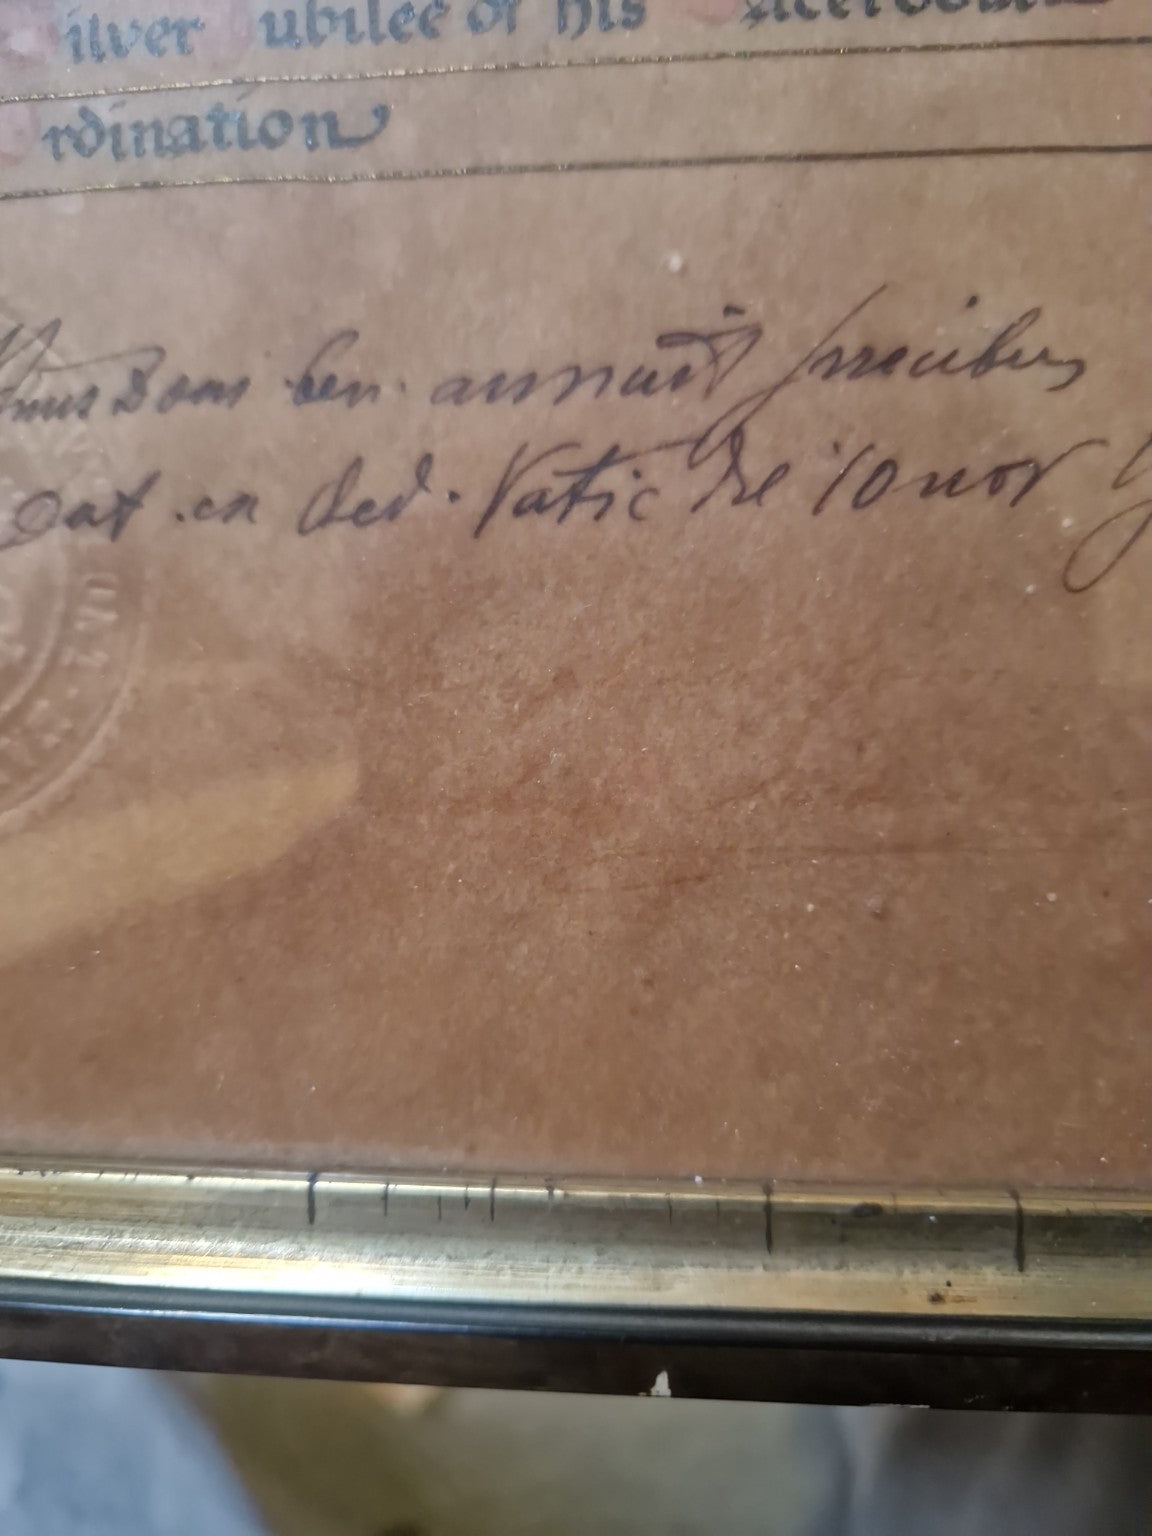 ilver ubilee of his
rdination
mus Dnus ben. annuit precibus
Dat. ex Aed. Vatic die 10 nov